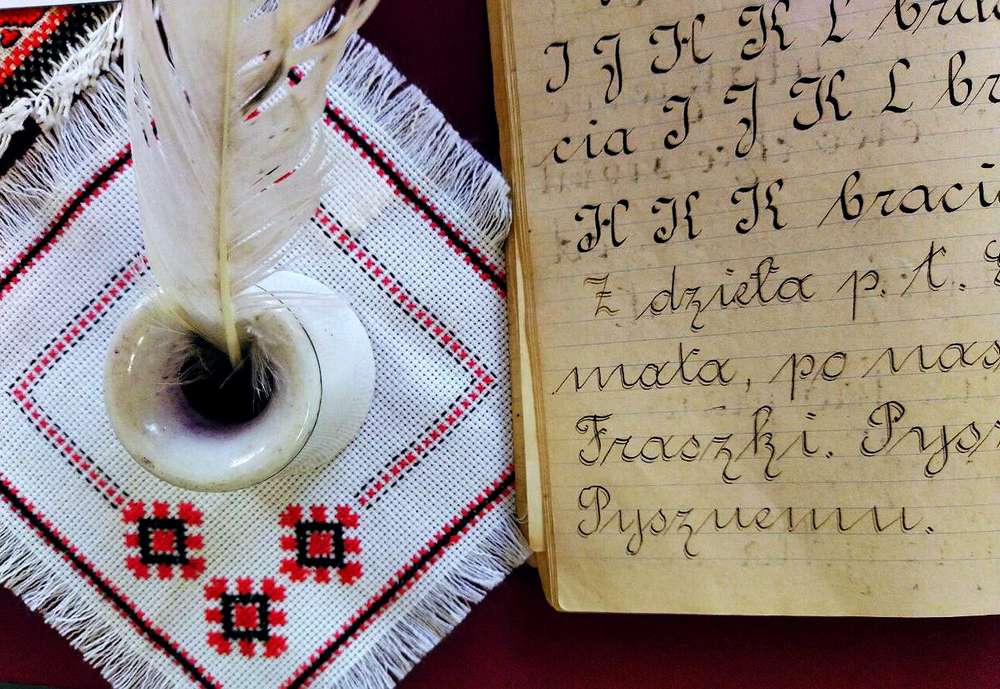 I J H K L brac
cia I J K L br
H K K braci
Z dzieła p. t.
mała, po nas
Fraszki. Pysz
Pysznemu.